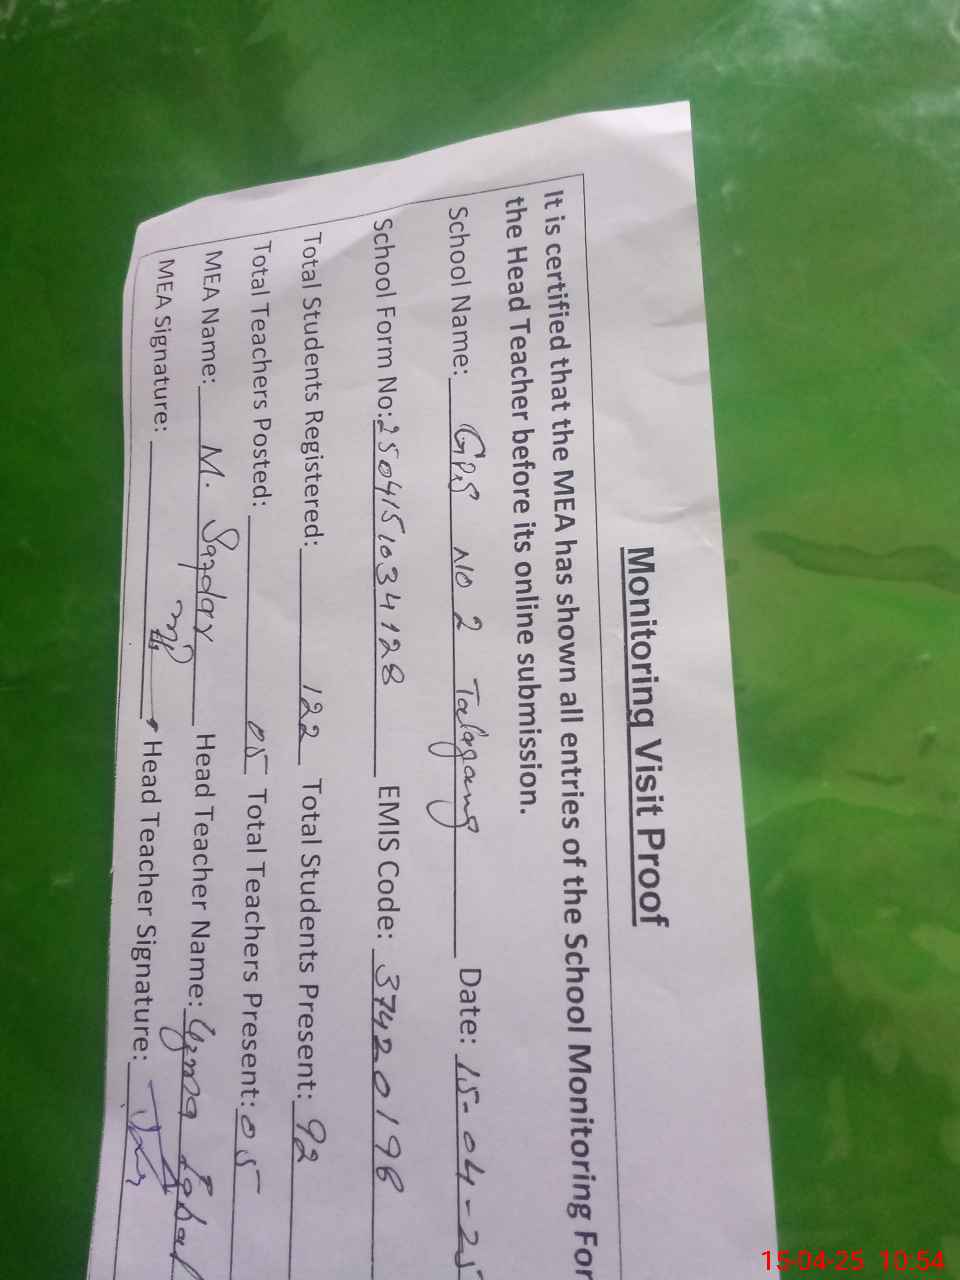 Monitoring Visit Proof
It is certified that the MEA has shown all entries of the School Monitoring For
the Head Teacher before its online submission.
School Name: GPS NO 2 Talagang Date: 15-04-25
School Form No: 2504151034128 EMIS Code: 37420198
Total Students Registered: 122 Total Students Present: 92
Total Teachers Posted: 05 Total Teachers Present: 05
MEA Name: M. Safdar Head Teacher Name: Uzma Iqbal
MEA Signature: Head Teacher Signature:
15-04-25 10:54